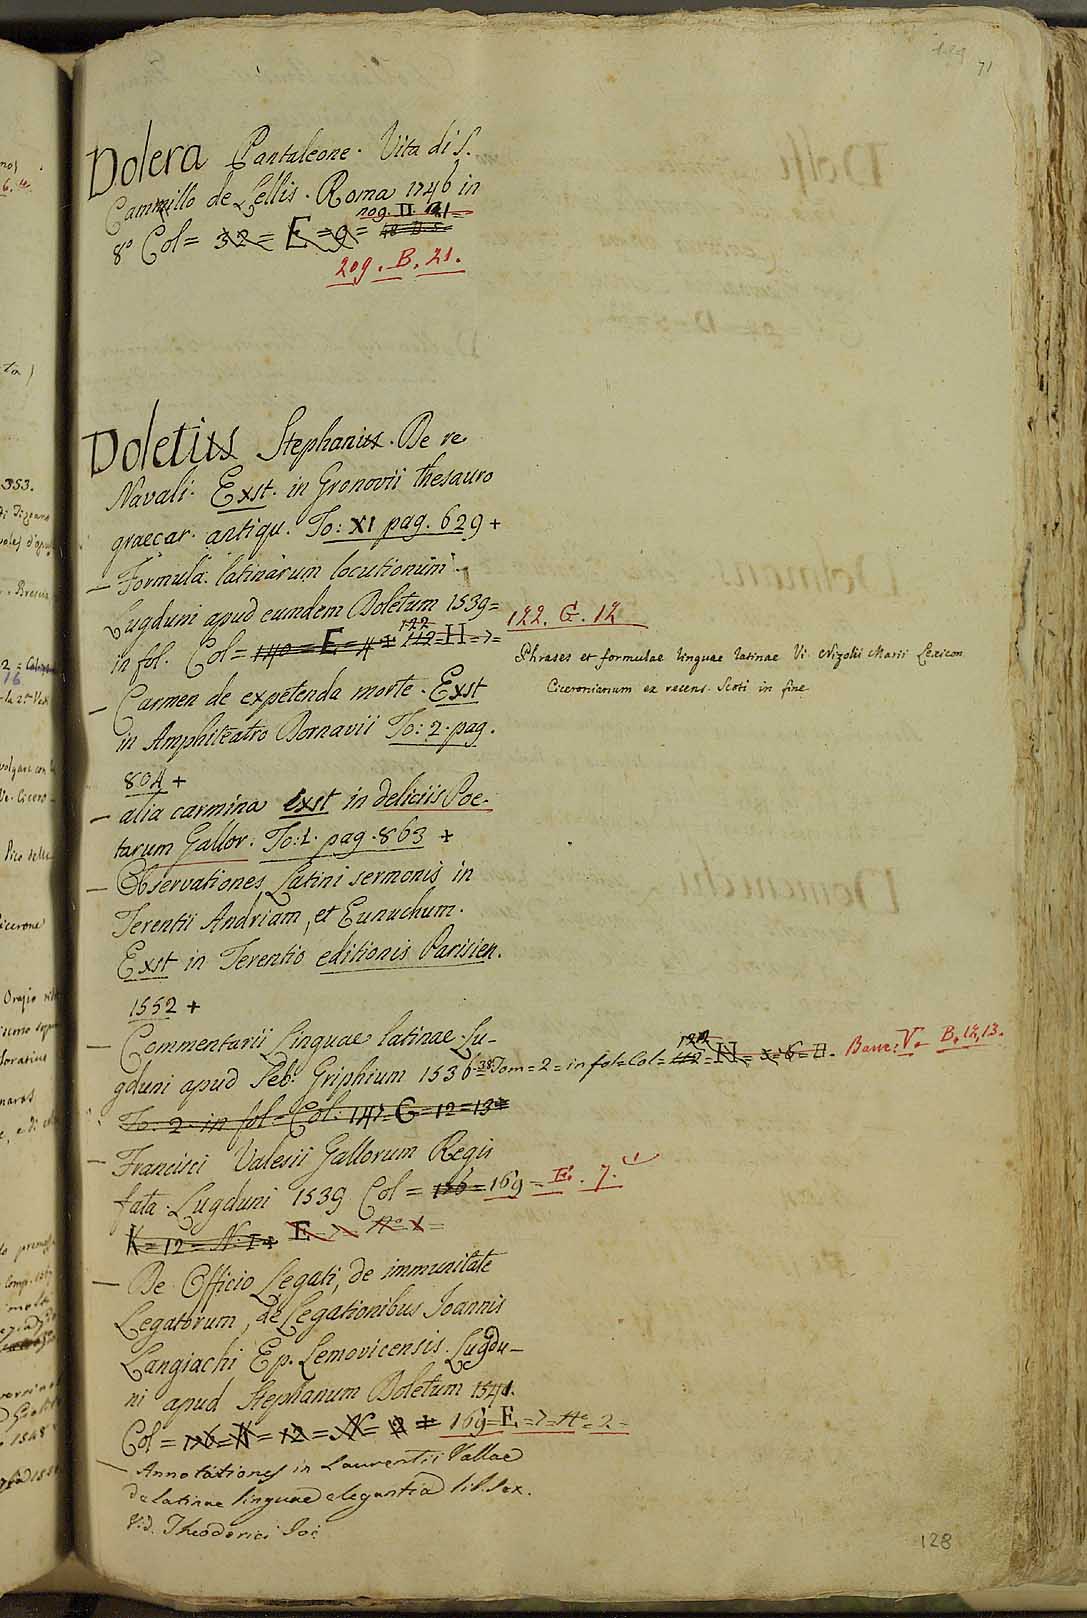 71
Dolera Pantaleone. Vita di S.
Cammillo de Lellis. Roma 1746 in
8° Col = 32 = E = 9 =
209. B. 21.
Doletus Stephanus. De re
Navali. Exst. in Gronovii thesauro
graecar. antiqu. To: XI pag. 629 +
– Formula. latinarum locutionum.
Lugduni apud eumdem Doletum 1539 =
122. G. 12
in fol. Col = 140 = E = 4 = 122 112 = H = 7 =
Phrases et formulae linguae latinae Vi. Nizolii Marii Lexicon
Ciceronianum ex recens. Scoti in fine
– Carmen de expetenda morte. Exst
in Amphiteatro Dornavii To: 2. pag.
804 +
– alia carmina exst in deliciis Poe-
tarum Gallor. To: 1. pag. 863 +
– Observationes Latini sermonis in
Terentii Andriam, et Eunuchum.
Exst in Terentio editionis Parisien.
1552 +
– Commentarii Linguae latinae. Lu-
gduni apud Seb. Griphium 1536 38 Tom = 2 = in fol = Col = 112 = H = Banc: V. B. 12, 13.
To: 2 in fol = Col: 147 = G = 12 = 13 =
– Francisci Valesii Gallorum Regis
fata. Lugduni 1539 Col = 156 = 169 = E. 7.
K = 12 = N. E = 7 = N° 1 =
– De Officio Legati, de immunitate
Legatorum, de Legationibus Joannis
Langiachi Ep. Lemovicensis. Lugdu-
ni apud Stephanum Doletum 1541.
Col = 156 = K = 12 = N = 2 = 169 = E = 7 = N° = 2 =
– Annotationes in Laurentii Vallae
de latinae linguae elegantia lib. sex.
Vid. Theodorici Joi
128